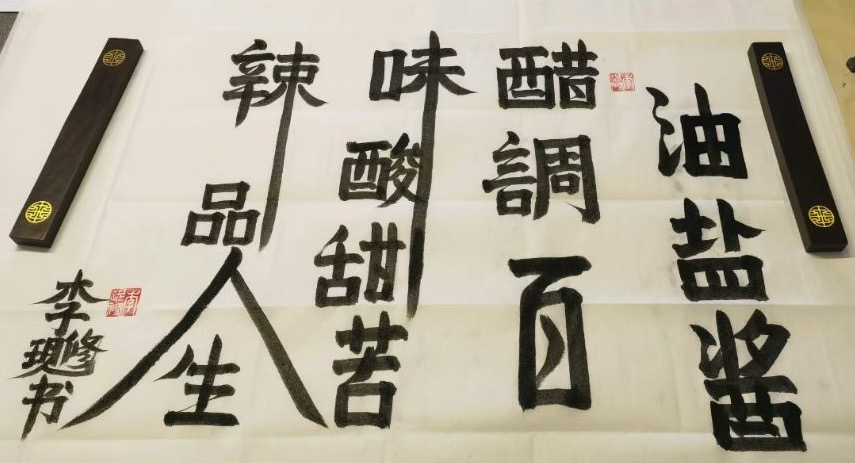 油盐酱
醋調百
味酸甜苦
辣品人生
李修現书